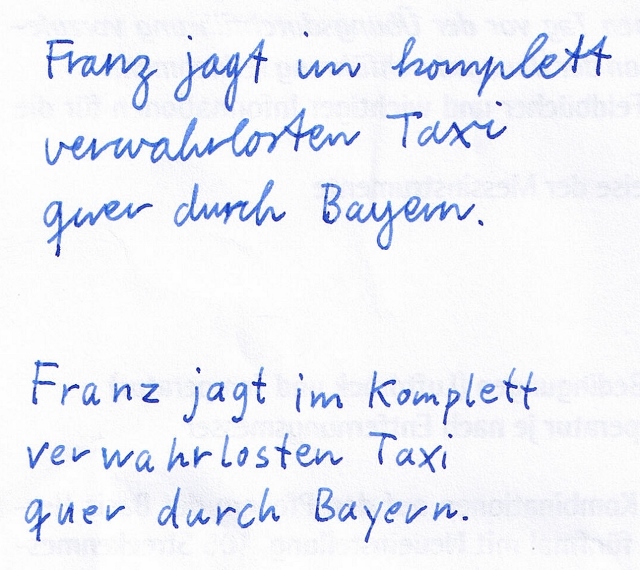 Franz jagt im komplett
verwahrlosten Taxi
quer durch Bayern.
Franz jagt im Komplett
verwahrlosten Taxi
quer durch Bayern.